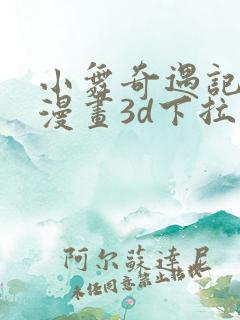 小舞奇遇记
漫畫3d下拉
阿尔蘇達尼
未经同意禁止转载